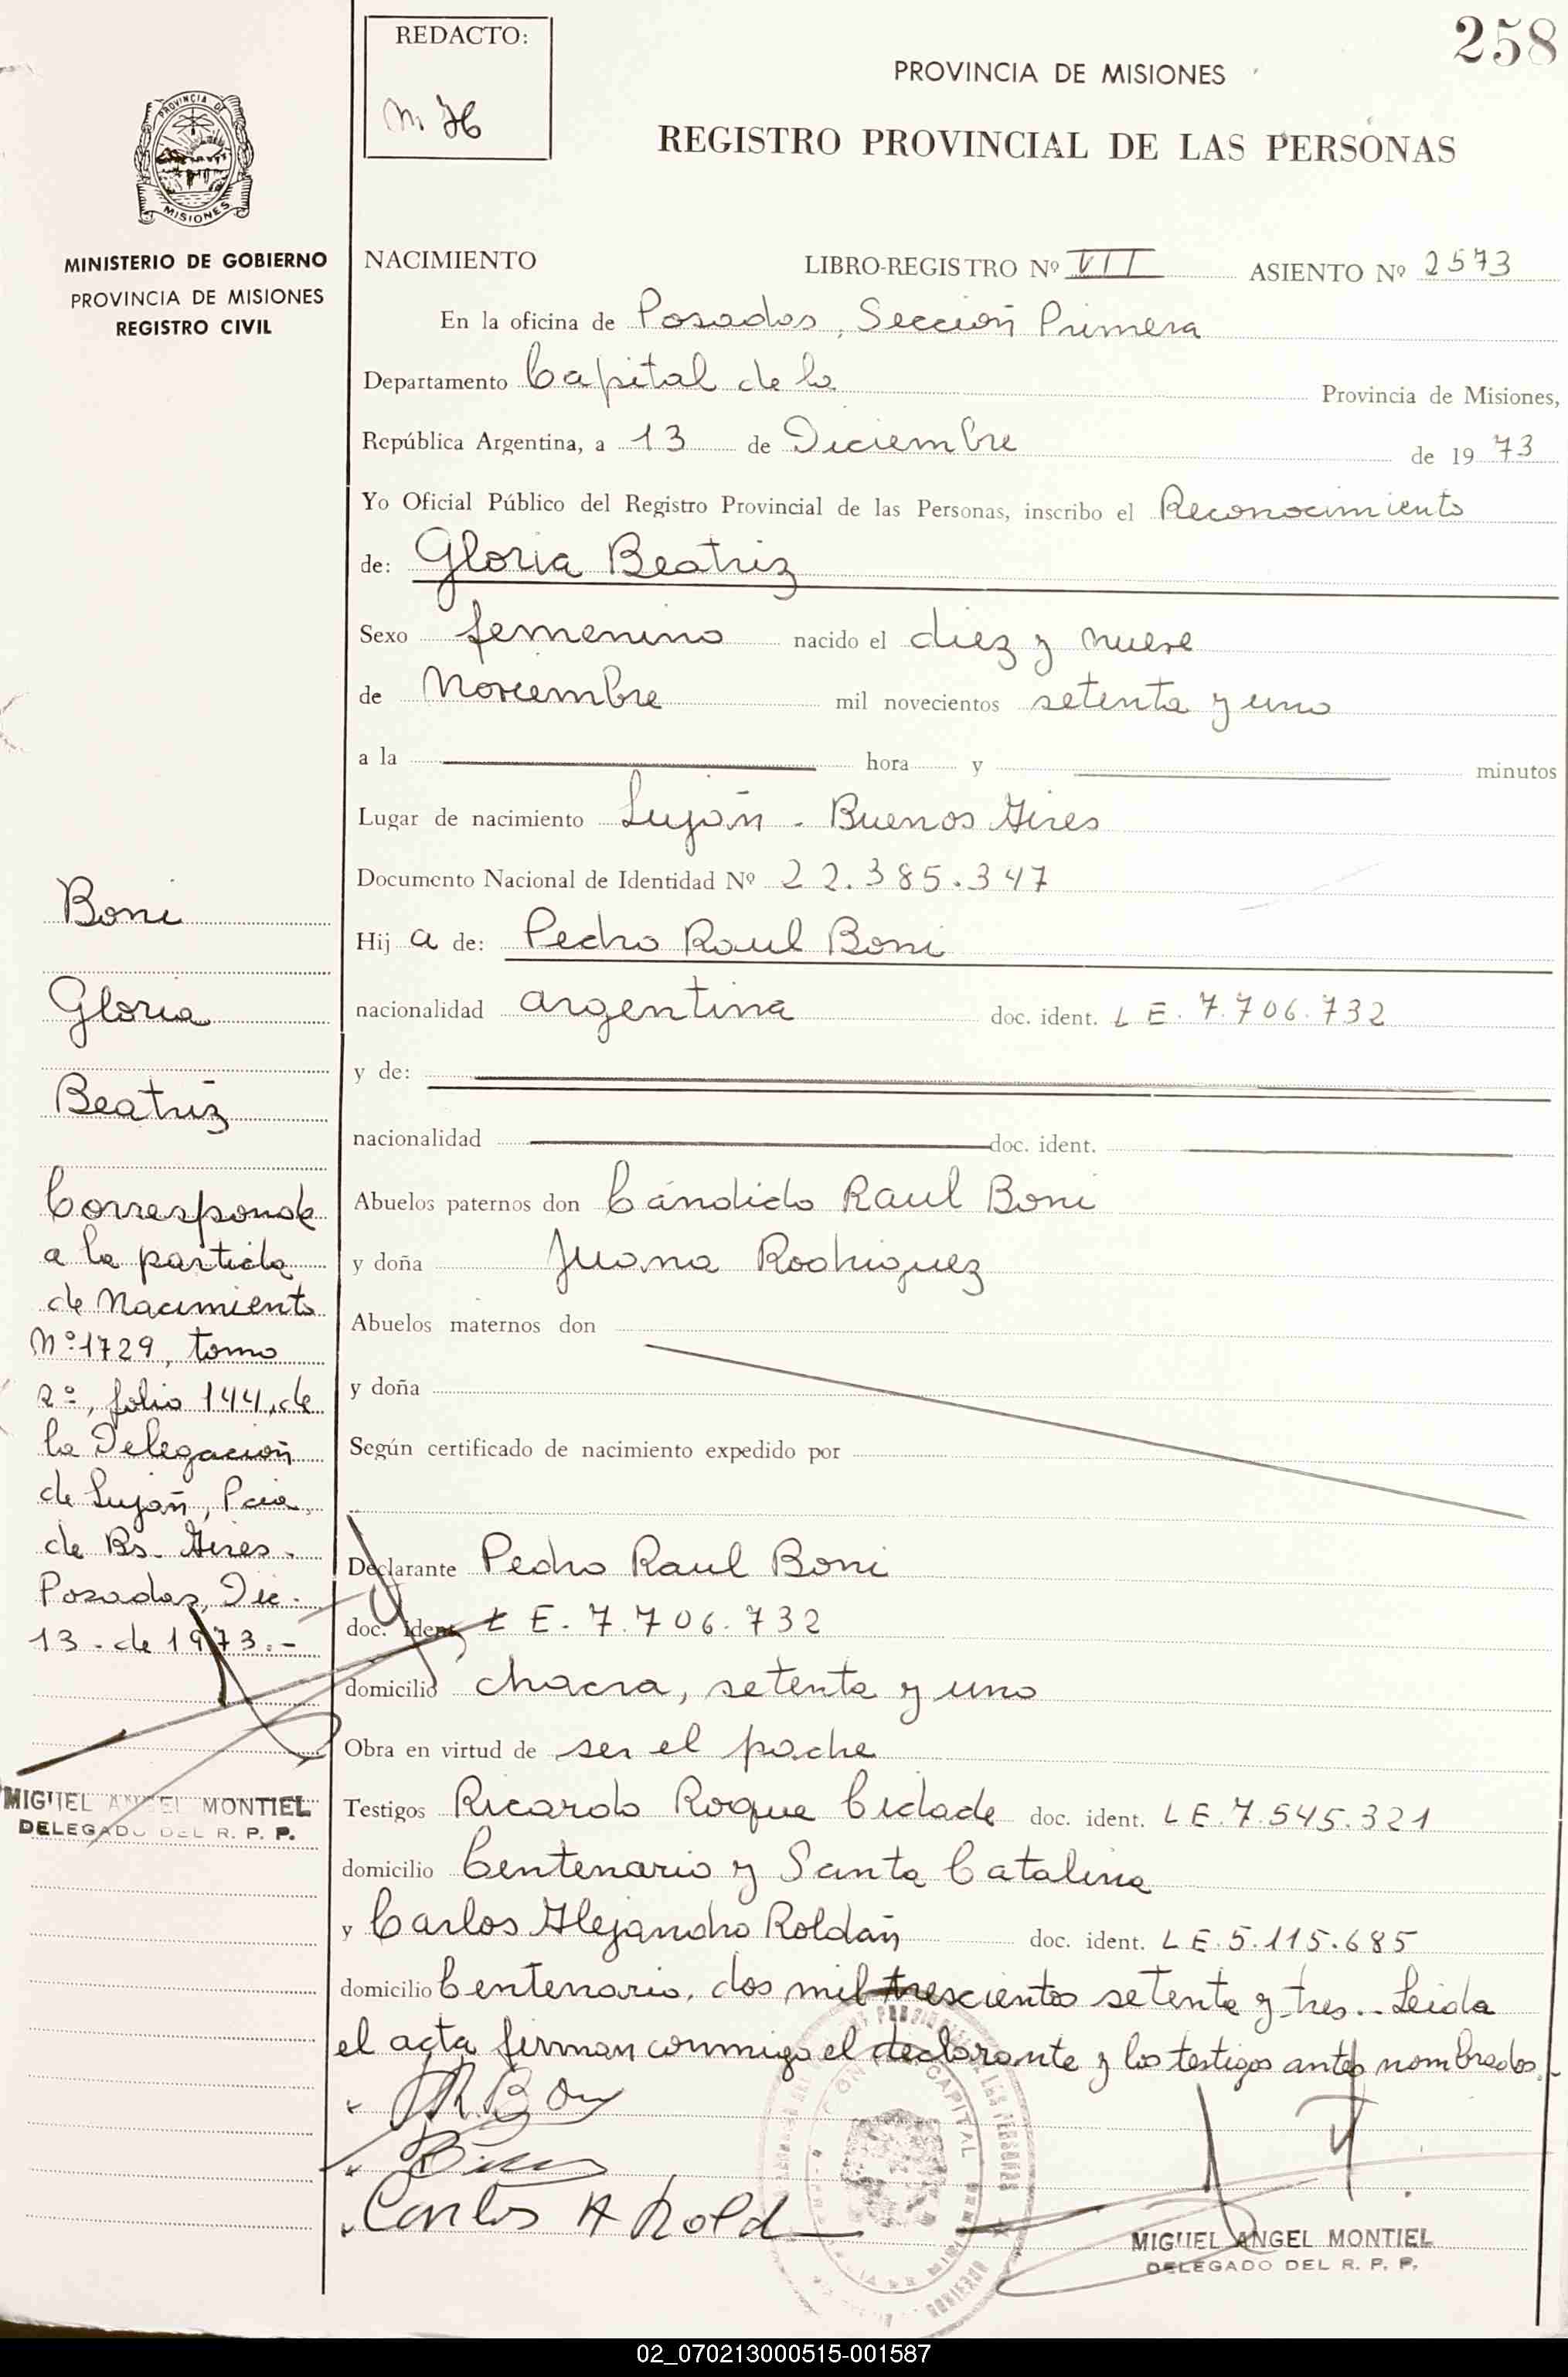 258
REDACTO:
PROVINCIA DE MISIONES
REGISTRO PROVINCIAL DE LAS PERSONAS
PROVINCIA DE
MISIONES
MINISTERIO DE GOBIERNO
PROVINCIA DE MISIONES
REGISTRO CIVIL
NACIMIENTO LIBRO-REGISTRO Nº VII ASIENTO Nº 2573
En la oficina de Posadas, Sección Primera
Departamento Capital de la Provincia de Misiones,
República Argentina, a 13 de Diciembre de 19 73
Yo Oficial Público del Registro Provincial de las Personas, inscribo el Reconocimiento
de: Gloria Beatriz
Sexo femenino nacido el diez y nueve
de Noviembre mil novecientos setenta y uno
a la hora y minutos
Lugar de nacimiento Luján - Buenos Aires
Documento Nacional de Identidad Nº 22.385.347
Hij a de: Pedro Raul Boni
nacionalidad argentina doc. ident. L E. 7.706.732
y de:
nacionalidad doc. ident.
Abuelos paternos don Cándido Raul Boni
y doña Juana Rodriguez
Abuelos maternos don
y doña
Según certificado de nacimiento expedido por
Declarante Pedro Raul Boni
doc. ident. L E. 7.706.732
domicilio chacra, setenta y uno
Obra en virtud de ser el padre
Testigos Ricardo Roque Cidade doc. ident. L E. 7.545.321
domicilio Centenario y Santa Catalina
y Carlos Alejandro Roldán doc. ident. L E. 5.115.685
domicilio Centenario, dos mil trescientos setenta y tres.- Leida
el acta firman conmigo el declarante y los testigos antes nombrados.-
Carlos A Rold
MIGUEL ANGEL MONTIEL
DELEGADO DEL R. P. P.
Boni
Gloria
Beatriz
Corresponde
a la partida
de Nacimiento
Nº 1729, tomo
2º, folio 144, de
la Delegación
de Luján, Pcia.
de Bs. Aires.
Posadas, Dic.
13 - de 1973.-
MIGUEL ANGEL MONTIEL
DELEGADO DEL R. P. P.
CAPITAL
02_070213000515-001587